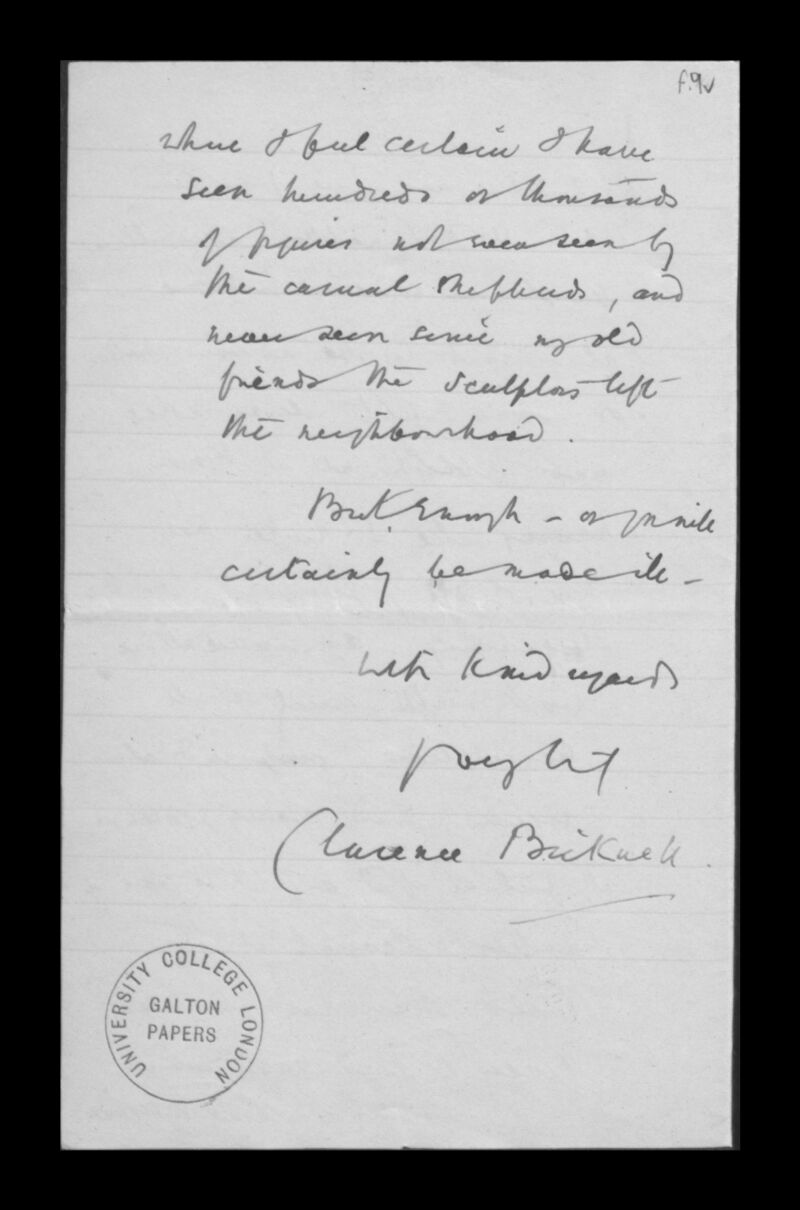 f.9v
where I feel certain I have
seen hundreds or thousands
of figures not even seen by
the casual shepherds, and
never seen since my old
friends the sculptors left
the neighbourhood.
But enough – or you will
certainly be made ill –
With kind regards
Clarence Bicknell.
UNIVERSITY COLLEGE LONDON
GALTON
PAPERS